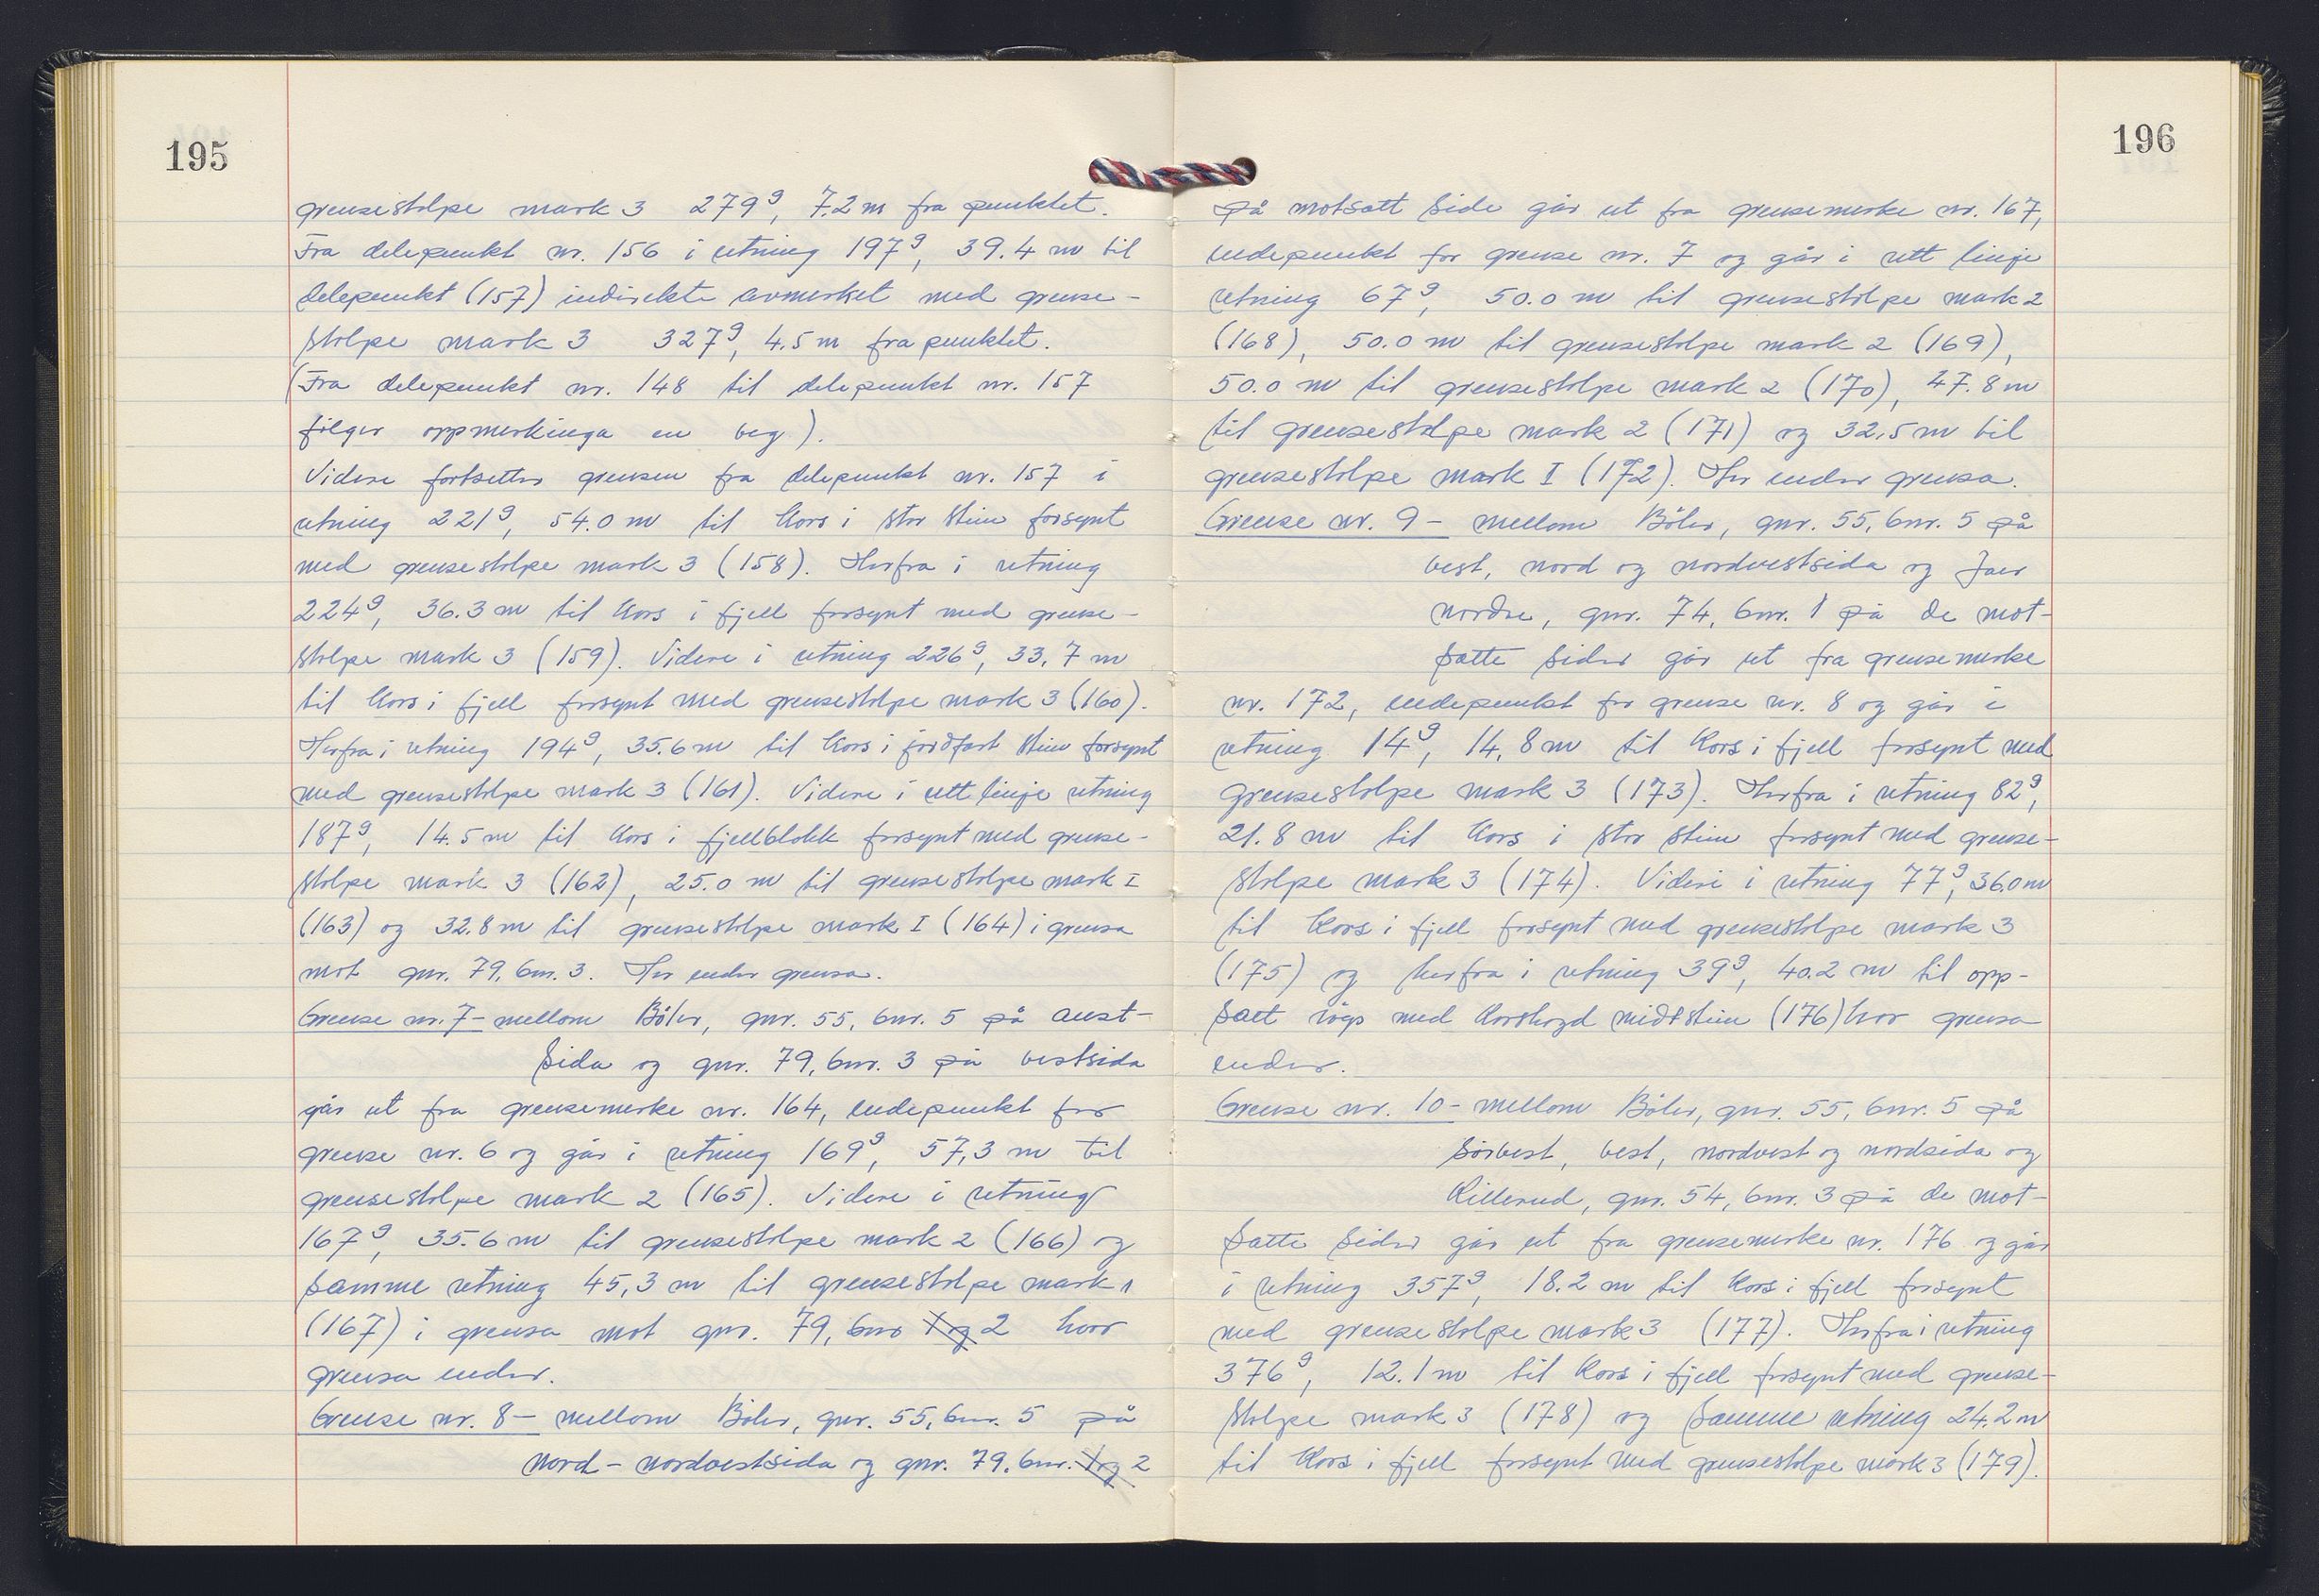 195
grensestolpe mark 3 279g, 7.2 m fra punktet.
Fra delepunkt nr. 156 i retning 197g, 39.4 m til
delepunkt (157) indirekte avmerket med grense-
stolpe mark 3 327g, 4.5 m fra punktet.
(Fra delepunkt nr. 148 til delepunkt nr. 157
følger oppmerkinga en veg).
Videre fortsetter grensen fra delepunkt nr. 157 i
retning 221g, 54.0 m til kors i stor stein forsynt
med grensestolpe mark 3 (158). Herfra i retning
224g, 36.3 m til kors i fjell forsynt med grense-
stolpe mark 3 (159). Videre i retning 226g, 33,7 m
til kors i fjell forsynt med grensestolpe mark 3 (160).
Herfra i retning 194g, 35.6 m til kors i jordfast stein forsynt
med grensestolpe mark 3 (161). Videre i rett linje retning
187g, 14.5 m til kors i fjellblokk forsynt med grense-
stolpe mark 3 (162), 25.0 m til grensestolpe mark I
(163) og 32.8 m til grensestolpe mark I (164) i grensa
mot gnr. 79, bnr. 3. Her ender grensa.
Grense nr. 7 - mellom Böler, gnr. 55, bnr. 5 på aust-
sida og gnr. 79, bnr. 3 på vestsida
går ut fra grensemerke nr. 164, endepunkt for
grense nr. 6 og går i retning 169g, 57,3 m til
grensestolpe mark 2 (165). Videre i retning
167g, 35.6 m til grensestolpe mark 2 (166) og
samme retning 45,3 m til grensestolpe mark 1
(167) i grensa mot gnr. 79, bnr 1 og 2 hvor
grensa ender.
Grense nr. 8 - mellom Böler, gnr. 55, bnr. 5 på
nord - nordvestsida og gnr. 79, bnr. 1 og 2
196
på motsatt side går ut fra grensemerke nr. 167,
endepunkt for grense nr. 7 og går i rett linje
retning 67g, 50.0 m til grensestolpe mark 2
(168), 50.0 m til grensestolpe mark 2 (169),
50.0 m til grensestolpe mark 2 (170), 47.8 m
til grensestolpe mark 2 (171) og 32,5 m til
grensestolpe mark I (172). Her ender grensa.
Grense nr. 9 - mellom Böler, gnr. 55, bnr. 5 på
vest, nord og nordvestsida og Jaer
nordre, gnr. 74, bnr. 1 på de mot-
satte sider går ut fra grensemerke
nr. 172, endepunkt for grense nr. 8 og går i
retning 14g, 14,8 m til kors i fjell forsynt med
grensestolpe mark 3 (173). Herfra i retning 82g,
21.8 m til kors i stor stein forsynt med grense-
stolpe mark 3 (174). Videre i retning 77g, 36.0 m
til kors i fjell forsynt med grensestolpe mark 3
(175) og herfra i retning 39g, 40.2 m til opp-
satt røys med korshogd midtstein (176) hvor grensa
ender.
Grense nr. 10 - mellom Böler, gnr. 55, bnr. 5 på
sörvest, vest, nordvest og nordsida og
Killerud, gnr. 54, bnr. 3 på de mot-
satte sider går ut fra grensemerke nr. 176 og går
i retning 357g, 18.2 m til kors i fjell forsynt
med grensestolpe mark 3 (177). Herfra i retning
376g, 12.1 m til kors i fjell forsynt med grense-
stolpe mark 3 (178) og samme retning 24.2 m
til kors i fjell forsynt med grensestolpe mark 3 (179).